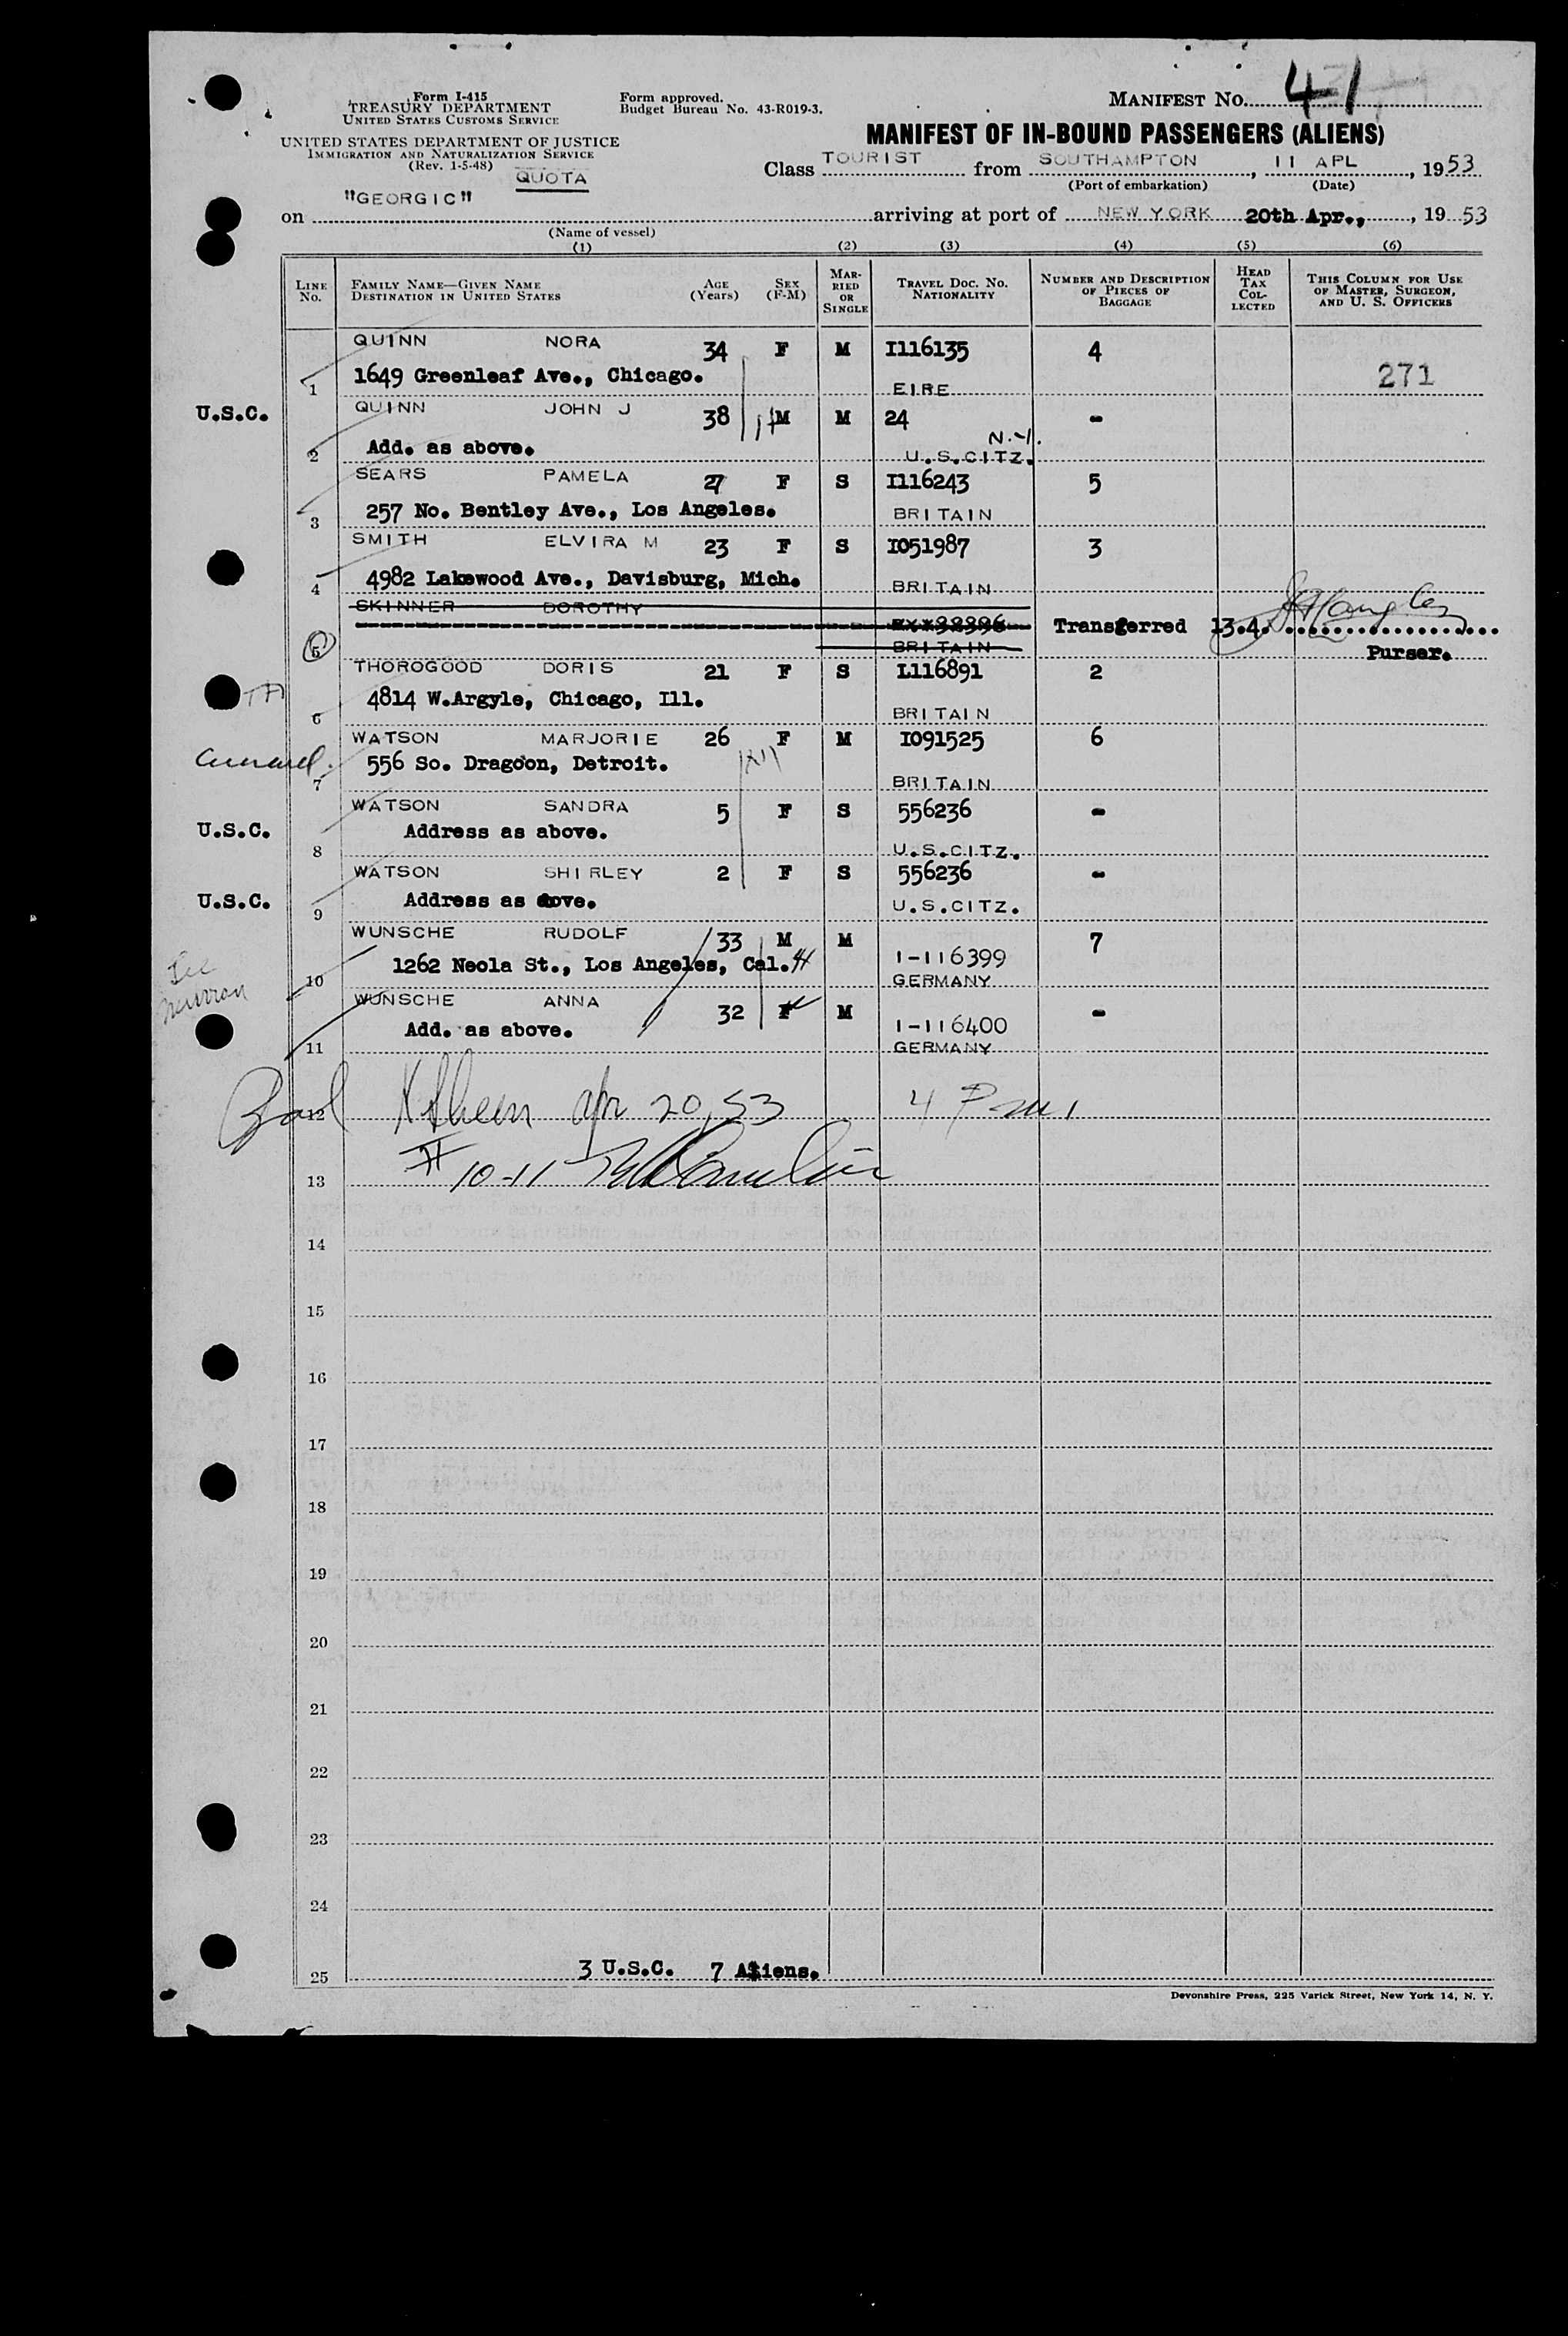 Form I-415
TREASURY DEPARTMENT
UNITED STATES CUSTOMS SERVICE
UNITED STATES DEPARTMENT OF JUSTICE
IMMIGRATION AND NATURALIZATION SERVICE
(Rev. 1-5-48)
QUOTA
Form approved.
Budget Bureau No. 43-R019-3.
MANIFEST No. 41
MANIFEST OF IN-BOUND PASSENGERS (ALIENS)
Class TOURIST from SOUTHAMPTON, 11 APL, 1953
(Port of embarkation) (Date)
on "GEORGIC" arriving at port of NEW YORK 20th Apr., 1953
(Name of vessel)
(1) (2) (3) (4) (5) (6)
LINE No. FAMILY NAME—GIVEN NAME DESTINATION IN UNITED STATES AGE (Years) SEX (F-M) MARRIED OR SINGLE TRAVEL DOC. No. NATIONALITY NUMBER AND DESCRIPTION OF PIECES OF BAGGAGE HEAD TAX COLLECTED THIS COLUMN FOR USE OF MASTER, SURGEON, AND U. S. OFFICERS
QUINN NORA 34 F M I116135 4
1 1649 Greenleaf Ave., Chicago. EIRE 271
U.S.C. QUINN JOHN J 38 M M 24 -
N.Y.
2 Add. as above. U.S.CITZ.
SEARS PAMELA 27 F S I116243 5
3 257 No. Bentley Ave., Los Angeles. BRITAIN
SMITH ELVIRA M 23 F S I051987 3
4 4982 Lakewood Ave., Davisburg, Mich. BRITAIN
SKINNER DOROTHY
Transferred 13.4.
5 BRITAIN Purser.
THOROGOOD DORIS 21 F S L116891 2
4814 W.Argyle, Chicago, Ill.
6 BRITAIN
WATSON MARJORIE 26 F M I091525 6
556 So. Dragoon, Detroit.
7 BRITAIN
WATSON SANDRA 5 F S 556236 -
U.S.C. Address as above.
8 U.S.CITZ.
WATSON SHIRLEY 2 F S 556236 -
U.S.C. 9 Address as above. U.S.CITZ.
WUNSCHE RUDOLF 33 M M 7
1262 Neola St., Los Angeles, Cal. I-116399
10 GERMANY
WUNSCHE ANNA 32 F M -
Add. as above. I-116400
11 GERMANY
12 Apr 20, 53
13 10-11
14
15
16
17
18
19
20
21
22
23
24
25 3 U.S.C. 7 Aliens.
Devonshire Press, 225 Varick Street, New York 14, N. Y.